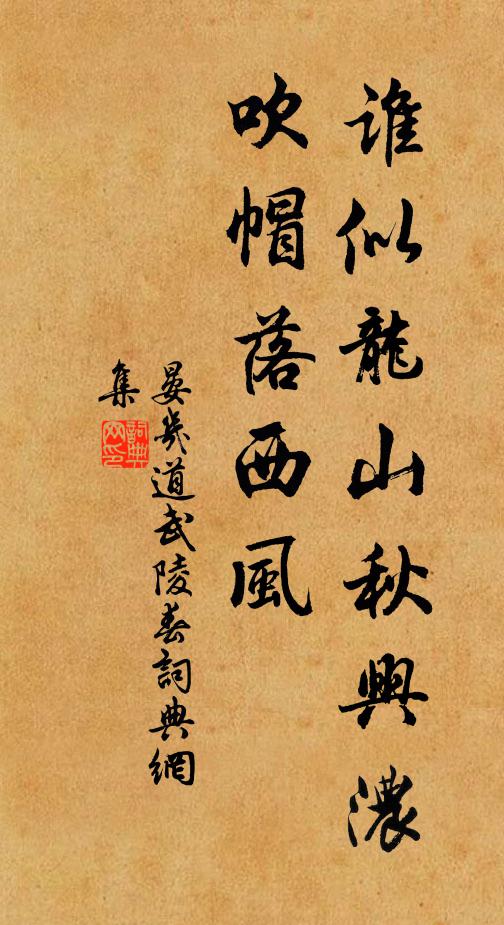 誰似龍山秋興濃
吹帽落西風
晏幾道武陵春詞典網
集
詞典
网印